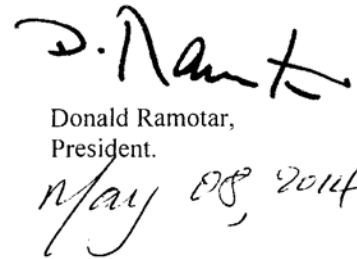 D. Ramotar
Donald Ramotar,
President.
May 08, 2014